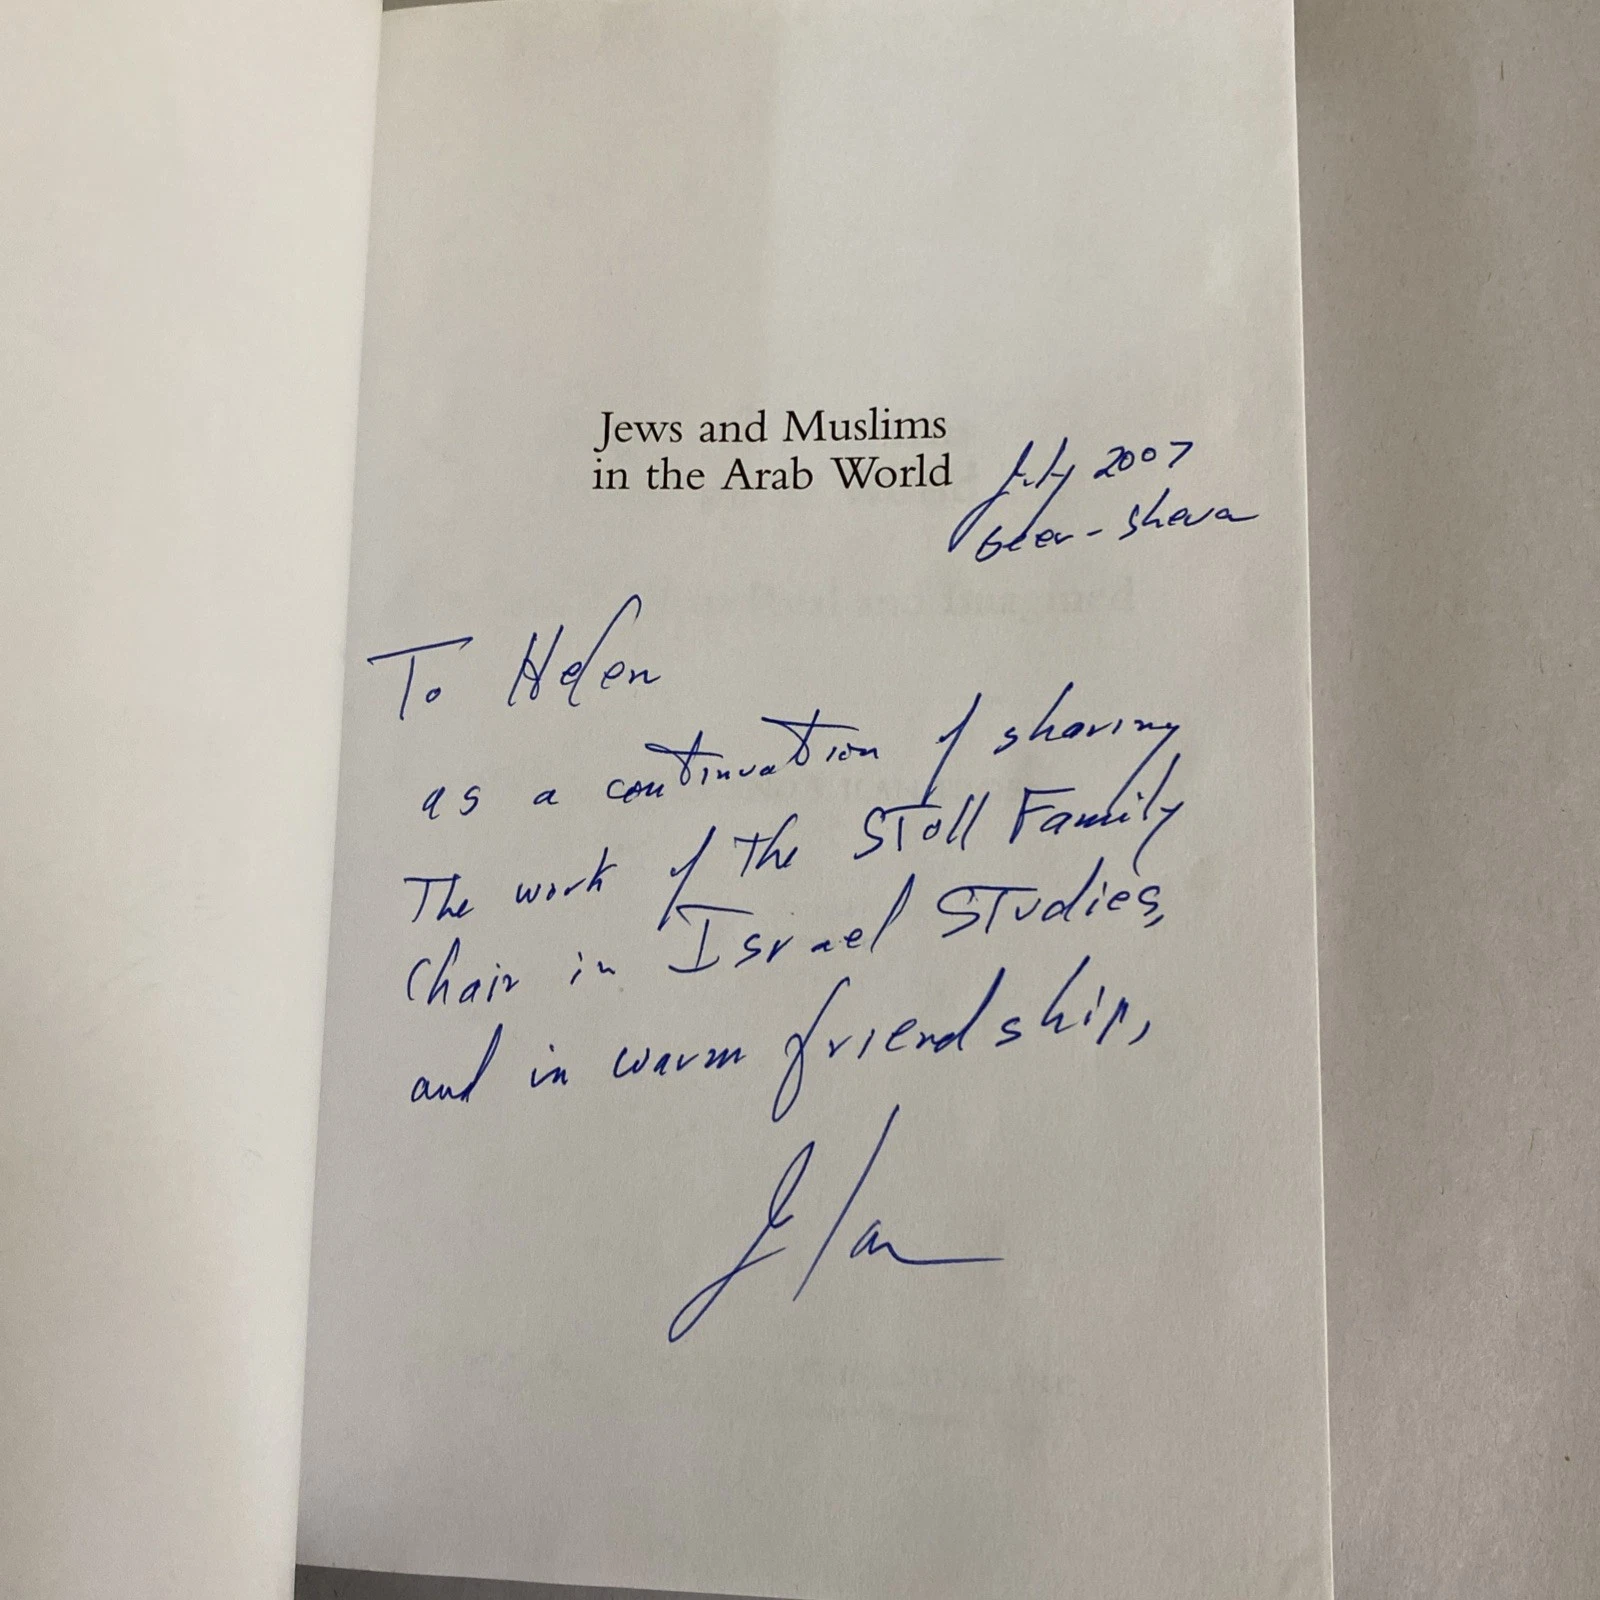 Jews and Muslims
in the Arab World
July 2007
Beer-Sheva
To Helen
as a continuation of sharing
The work of the Stoll Family
Chair in Israel Studies,
and in warm friendship,
Ilan